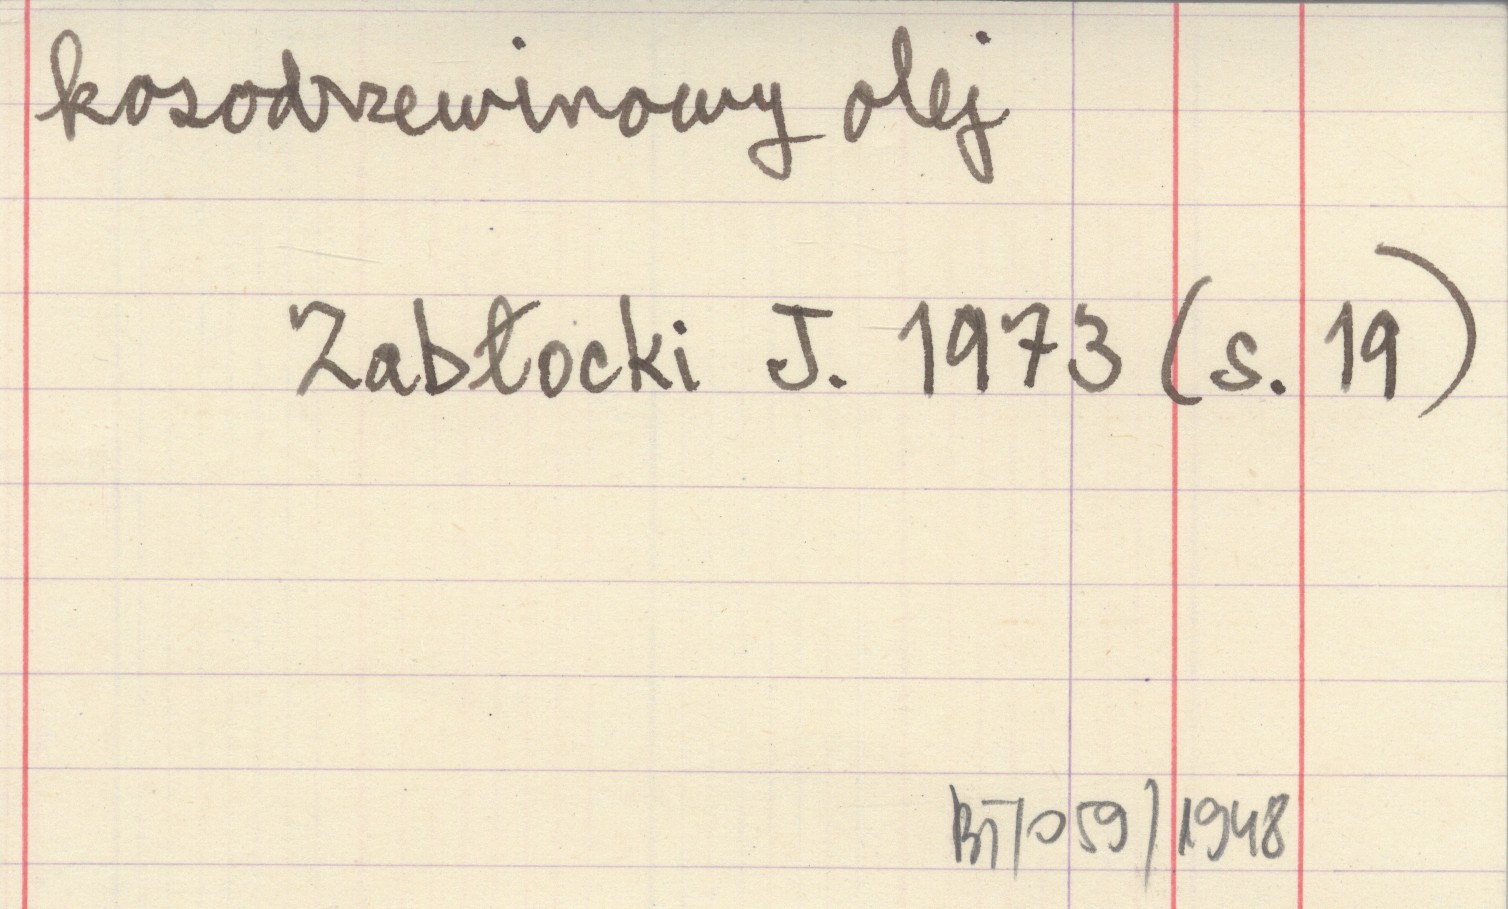 kosodrzewinowy olej
Zabłocki J. 1973 (s. 19)
BT/059/1948